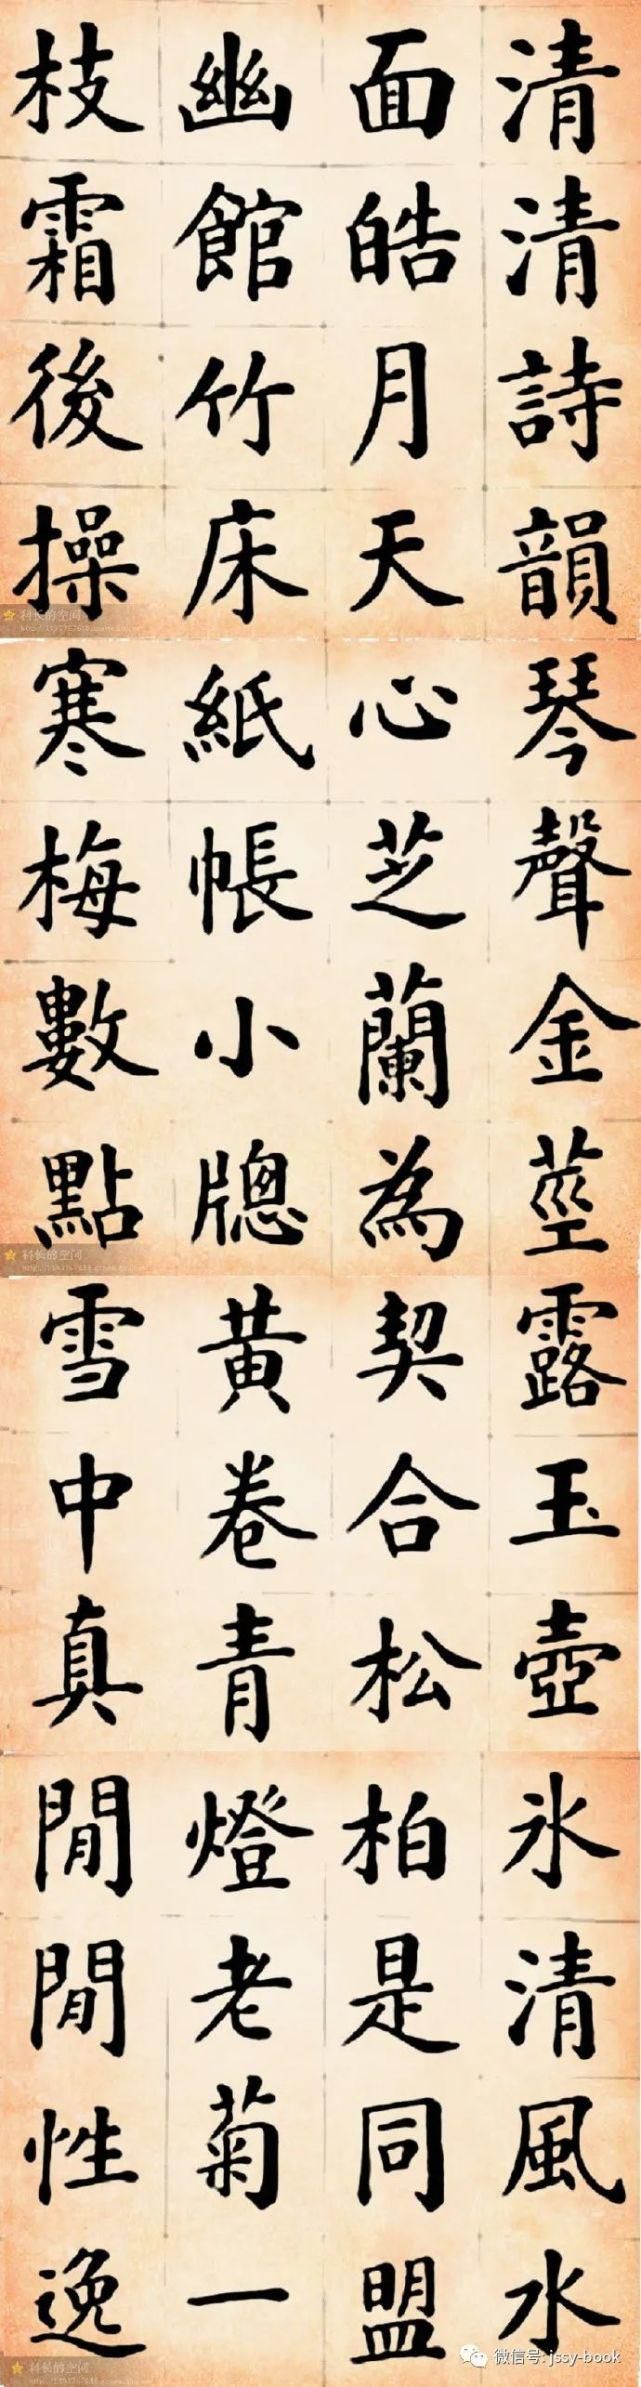 清清詩韻琴聲金莖露玉壺氷清風水
面皓月天心芝蘭為契合松柏是同盟
幽館竹床紙帳小牕黃卷青燈老菊一
枝霜後操寒梅數點雪中真閒閒性逸
科长的空间
科长的空间
科长的空间
微信号: jssy-book